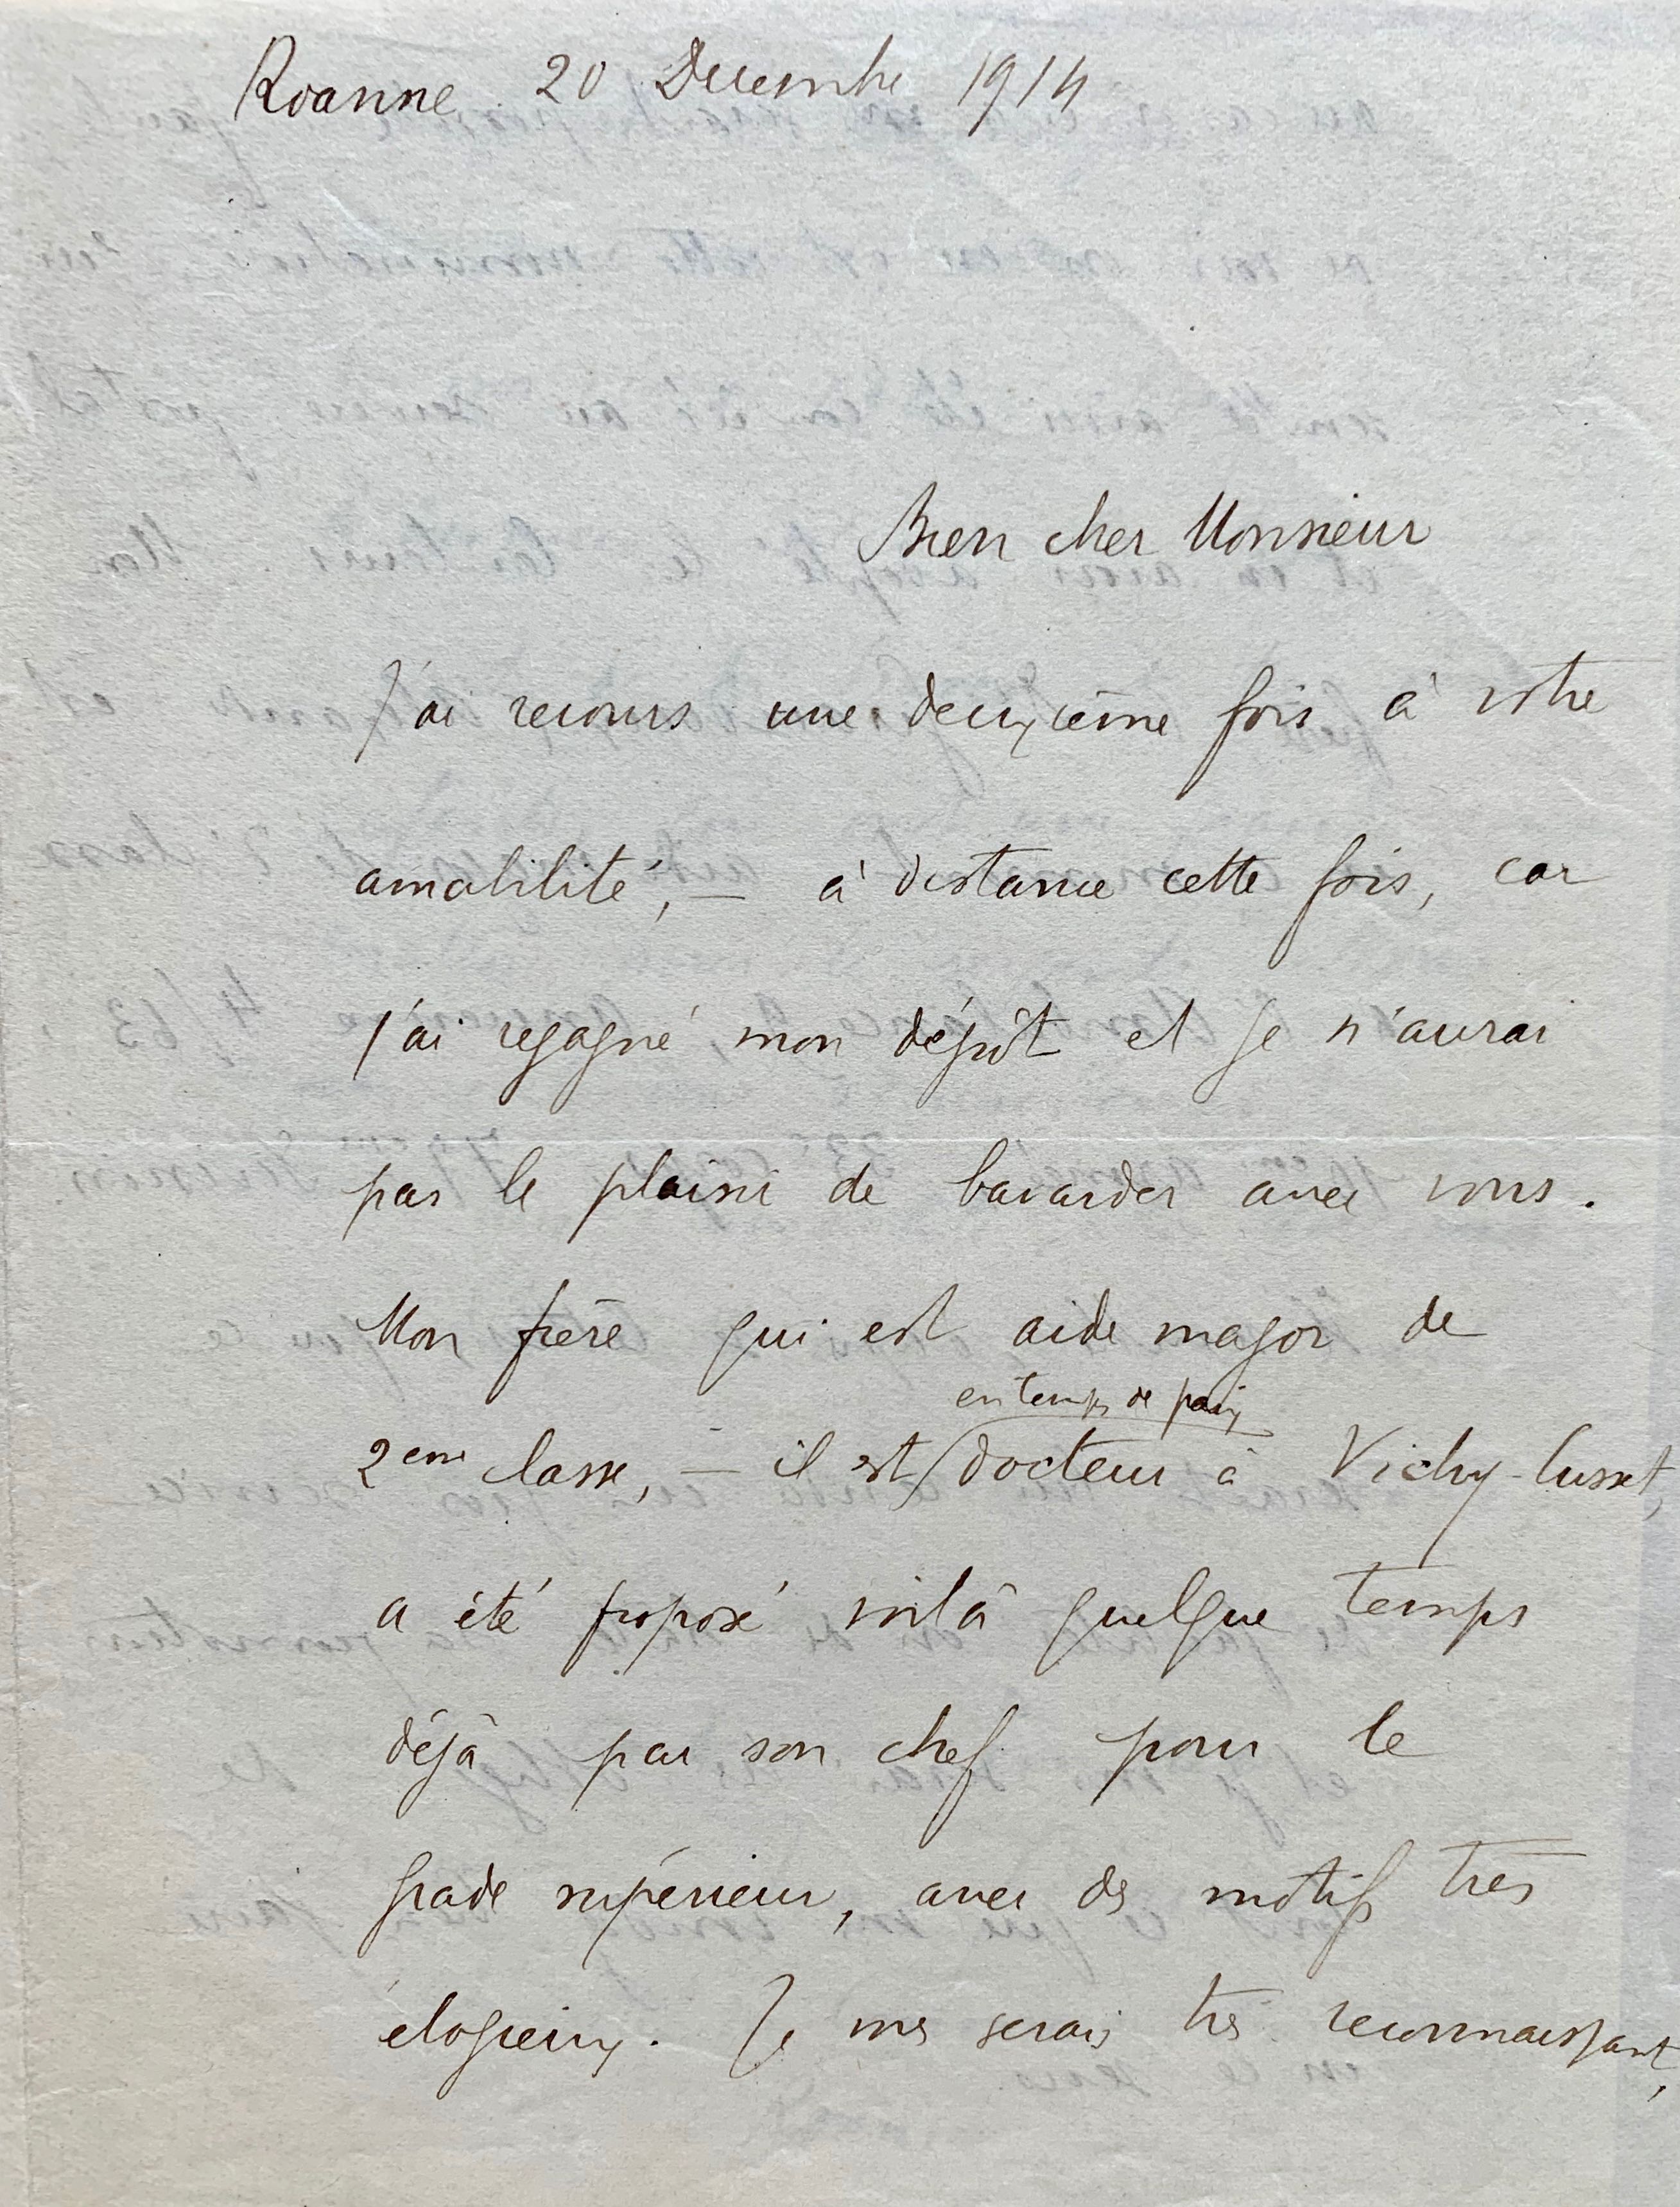 Roanne 20 Decembre 1914
Bien cher Monsieur
J'ai recours une deuxième fois à votre
amabilité, — à distance cette fois, car
j'ai regagné mon dépôt et je n'aurai
pas le plaisir de bavarder avec vous.
Mon frère qui est aide major de
en temps de paix
2eme classe, — il est docteur à Vichy-Cusset,
a été proposé voilà quelque temps
déjà par son chef pour le
grade supérieur, avec des motifs très
élogieux. Je vous serais très reconnaissant,